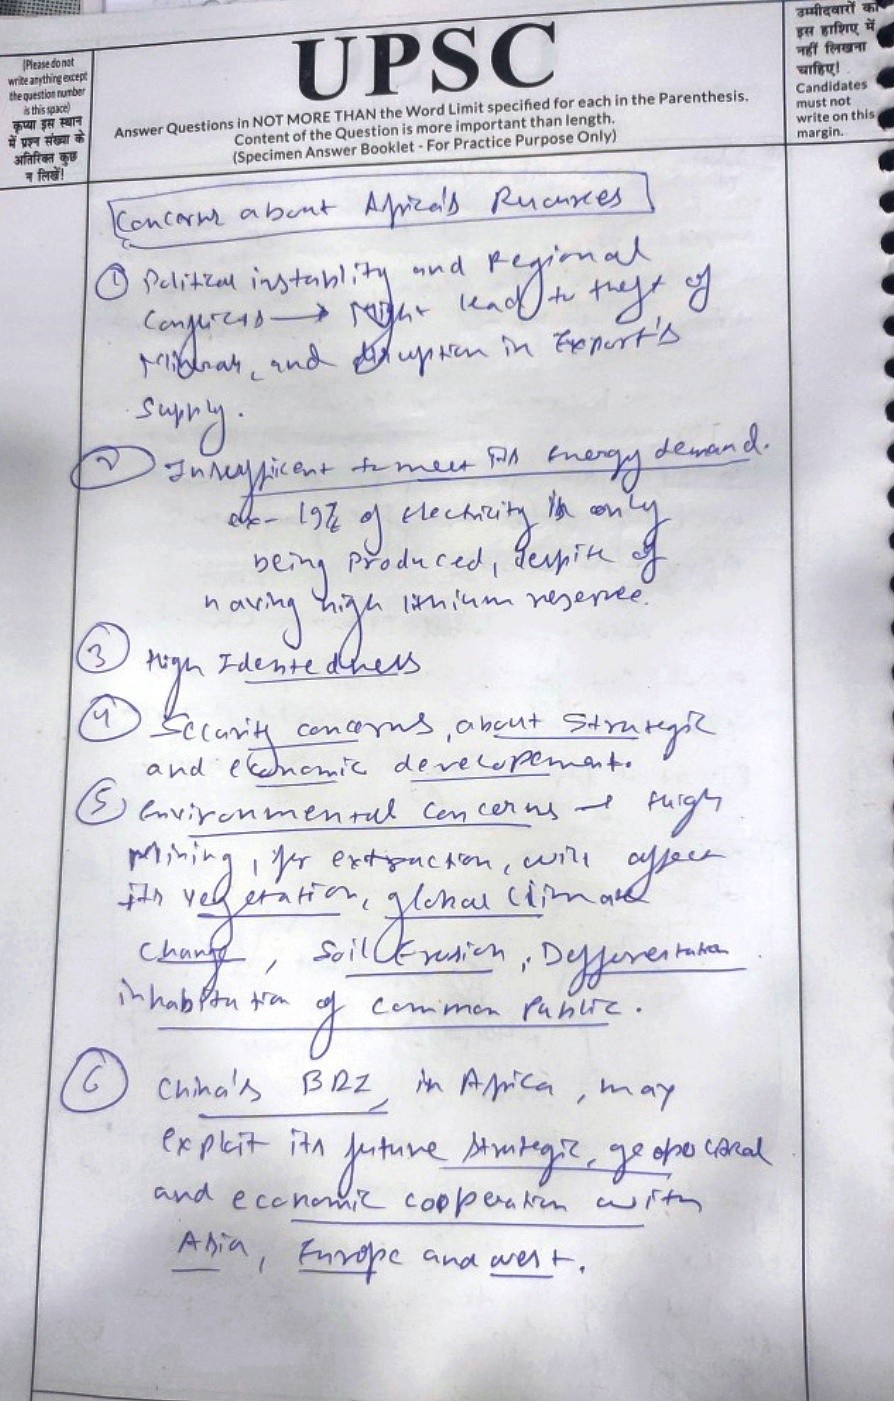 (Please do not
write anything except
the question number
is this space)
कृप्या इस स्थान
में प्रश्न संख्या के
अतिरिक्त कुछ
न लिखें!
UPSC
Answer Questions in NOT MORE THAN the Word Limit specified for each in the Parenthesis.
Content of the Question is more important than length.
(Specimen Answer Booklet - For Practice Purpose Only)
उम्मीदवारों को
इस हाशिए में
नहीं लिखना
चाहिए!
Candidates
must not
write on this
margin.
Concerns about Africa's Resources
① Political instability and Regional
Conflicts → Might lead to theft of
Minerals, and disruption in Export's
supply.
② Insufficent to meet its energy demand.
ex- 19% of electricity is only
being produced, despite of
having high lithium reserve.
③ High Identedness
④ Security concerns, about Strategic
and economic developement.
⑤ environmental concerns → High
Mining, for extraction, will affect
its vegetation, global Climate
Change, Soil Erosion, Defforestation
inhabitation of common public.
⑥ China's BRI, in Africa, may
exploit its future strategic, geopolitical
and economic cooperation with
Asia, Europe and west.